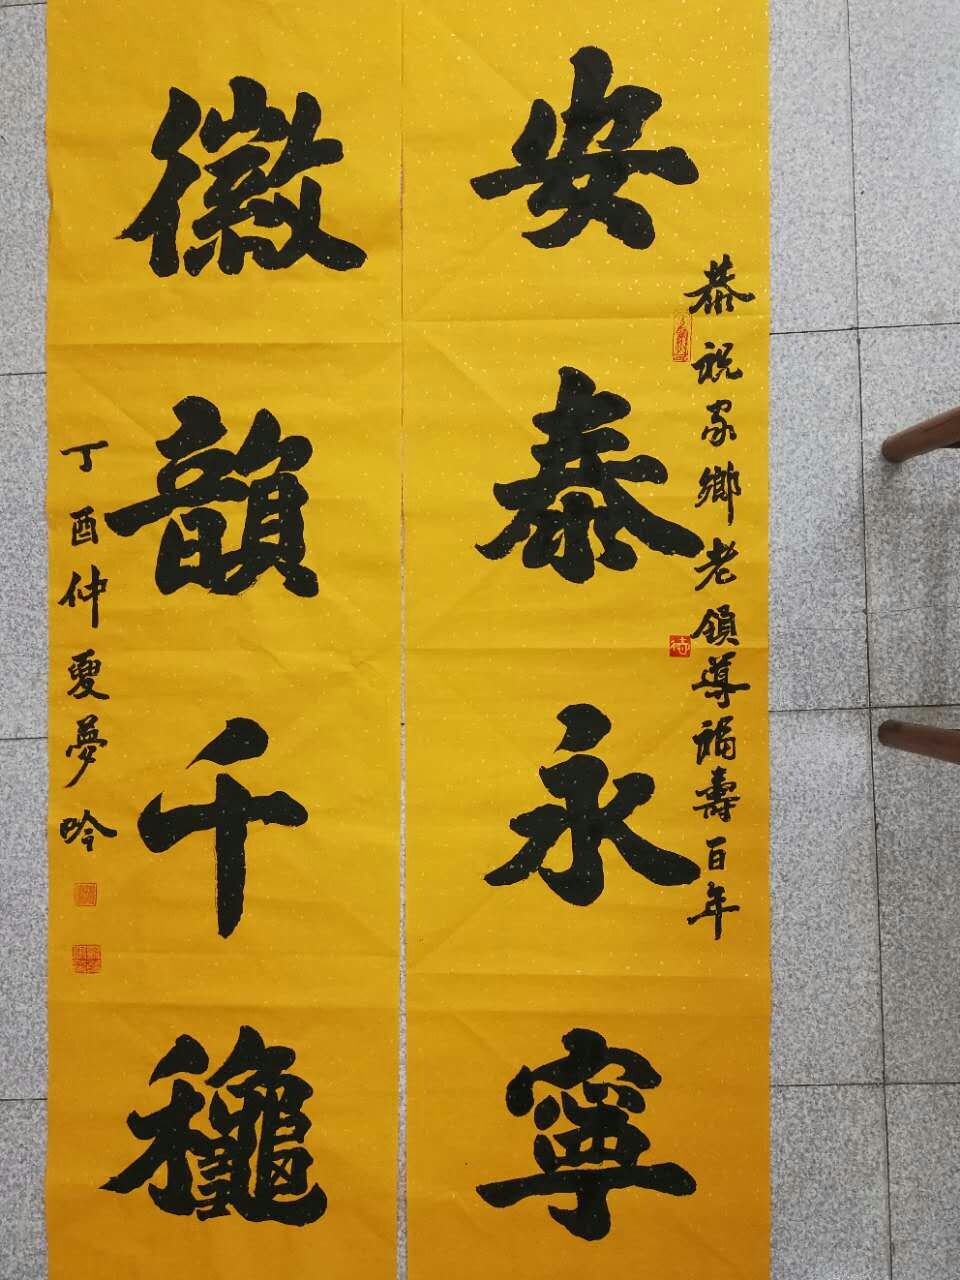 恭祝家鄉老領導福壽百年
安泰永寧
徽韻千龝
丁酉仲夏夢吟